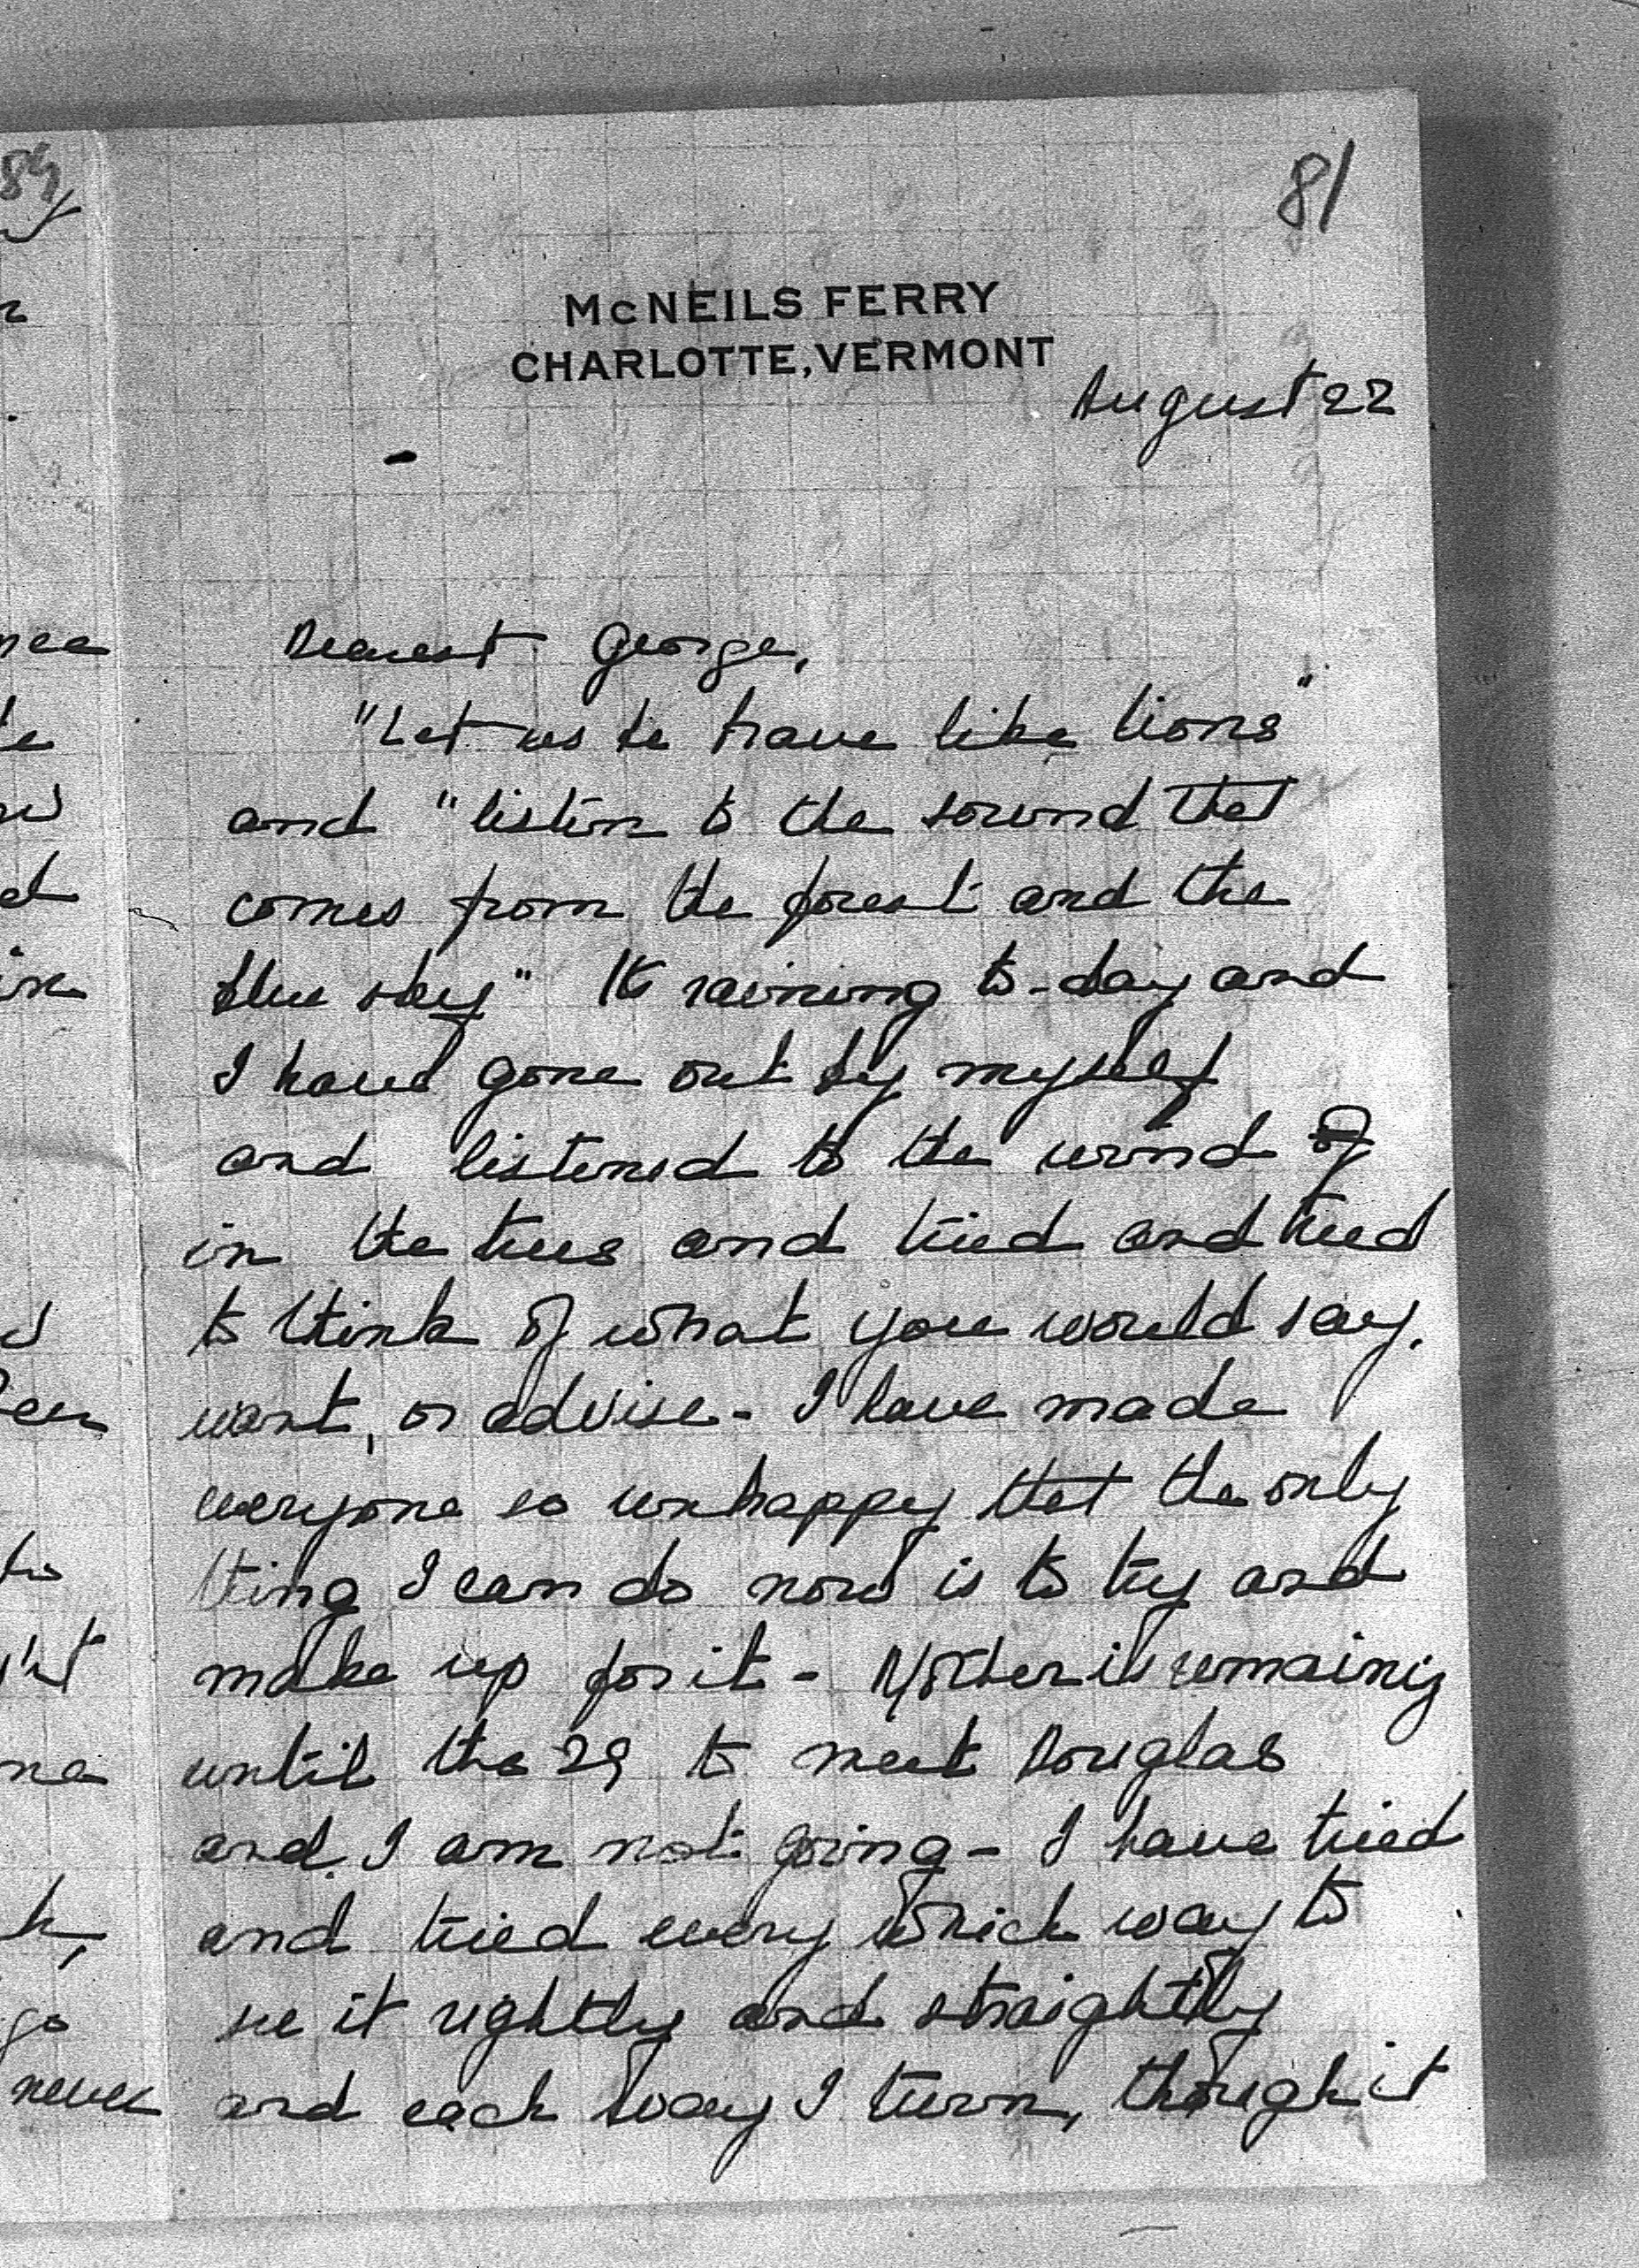 81
McNEILS FERRY
CHARLOTTE, VERMONT
August 22
Dearest George,
"Let us be brave like lions"
and "listen to the sound that
comes from the forest and the
blue sky" Its raining to-day and
I have gone out by myself
and listened to the wind of
in the trees and tried and tried
to think of what you would say,
want, or advise - I have made
everyone so unhappy that the only
thing I can do now is to try and
make up for it - Mother is remaining
until the 29 to meet Douglas
and I am not going - I have tried
and tried every which way to
see it rightly and straightly
and each way I turn, though it
84
go
never